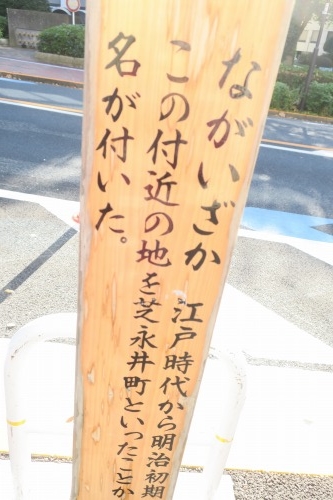 ながいざか 江戸時代から明治初期
この付近の地を芝永井町といったことか
名が付いた。